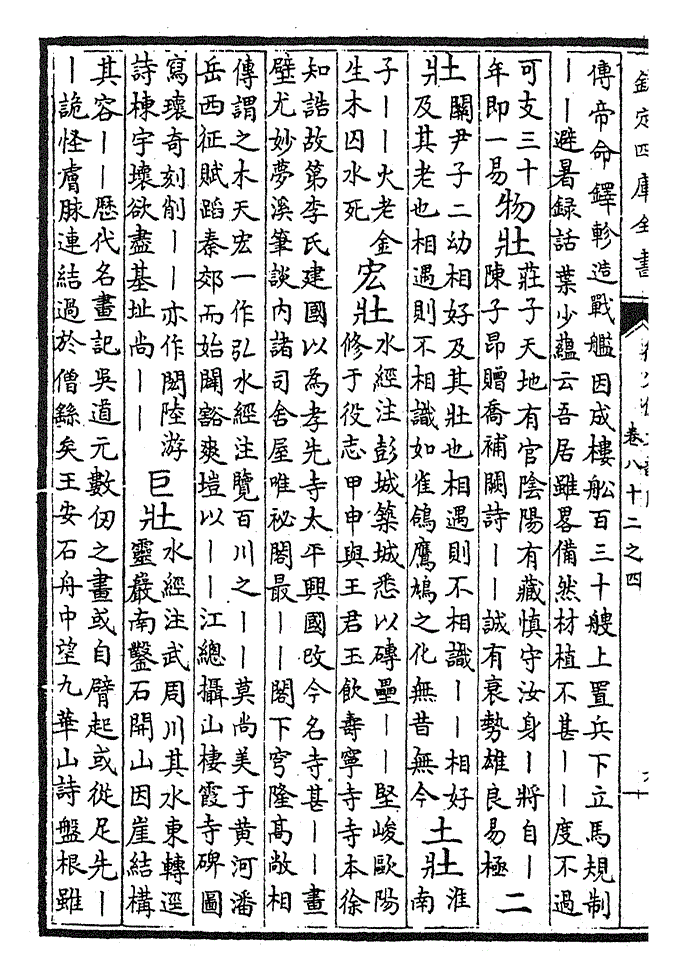 欽定四庫全書
卷八十二之四
傳帝命鐸軫造戰艦因成樓船百三十艘上置兵下立馬規制
丨丨避暑録話葉少藴云吾居雖畧備然材植不甚丨丨度不過
可支三十
年即一易
物壯
莊子天地有官陰陽有藏慎守汝身丨將自丨
陳子昂贈喬補闕詩丨丨誠有衰勢雄良易極
二
壯
關尹子二幼相好及其壯也相遇則不相識丨丨相好
及其老也相遇則不相識如雀鴿鷹鳩之化無昔無今
土壯
淮
南
子丨丨火老金
生木囚水死
宏壯
水經注彭城築城悉以磚壘丨丨堅峻歐陽
修于役志甲申與王君玉飲壽寧寺寺本徐
知誥故第李氏建國以為孝先寺太平興國改今名寺甚丨丨畫
壁尤妙夢溪筆談内諸司舍屋唯祕閣最丨丨閣下穹隆髙敞相
傳謂之木天宏一作弘水經注覽百川之丨丨莫尚美于黄河潘
岳西征賦蹈秦郊而始闢豁爽塏以丨丨江總攝山棲霞寺碑圖
寫瓌奇刻削丨丨亦作閎陸游
詩棟宇壊欲盡基址尚丨丨
巨壯
水經注武周川其水東轉逕
靈巖南鑿石開山因崖結構
其容丨丨歴代名畫記吳道元數仭之畫或自臂起或從足先丨
丨詭怪膚脉連結過於僧繇矣王安石舟中望九華山詩盤根雖